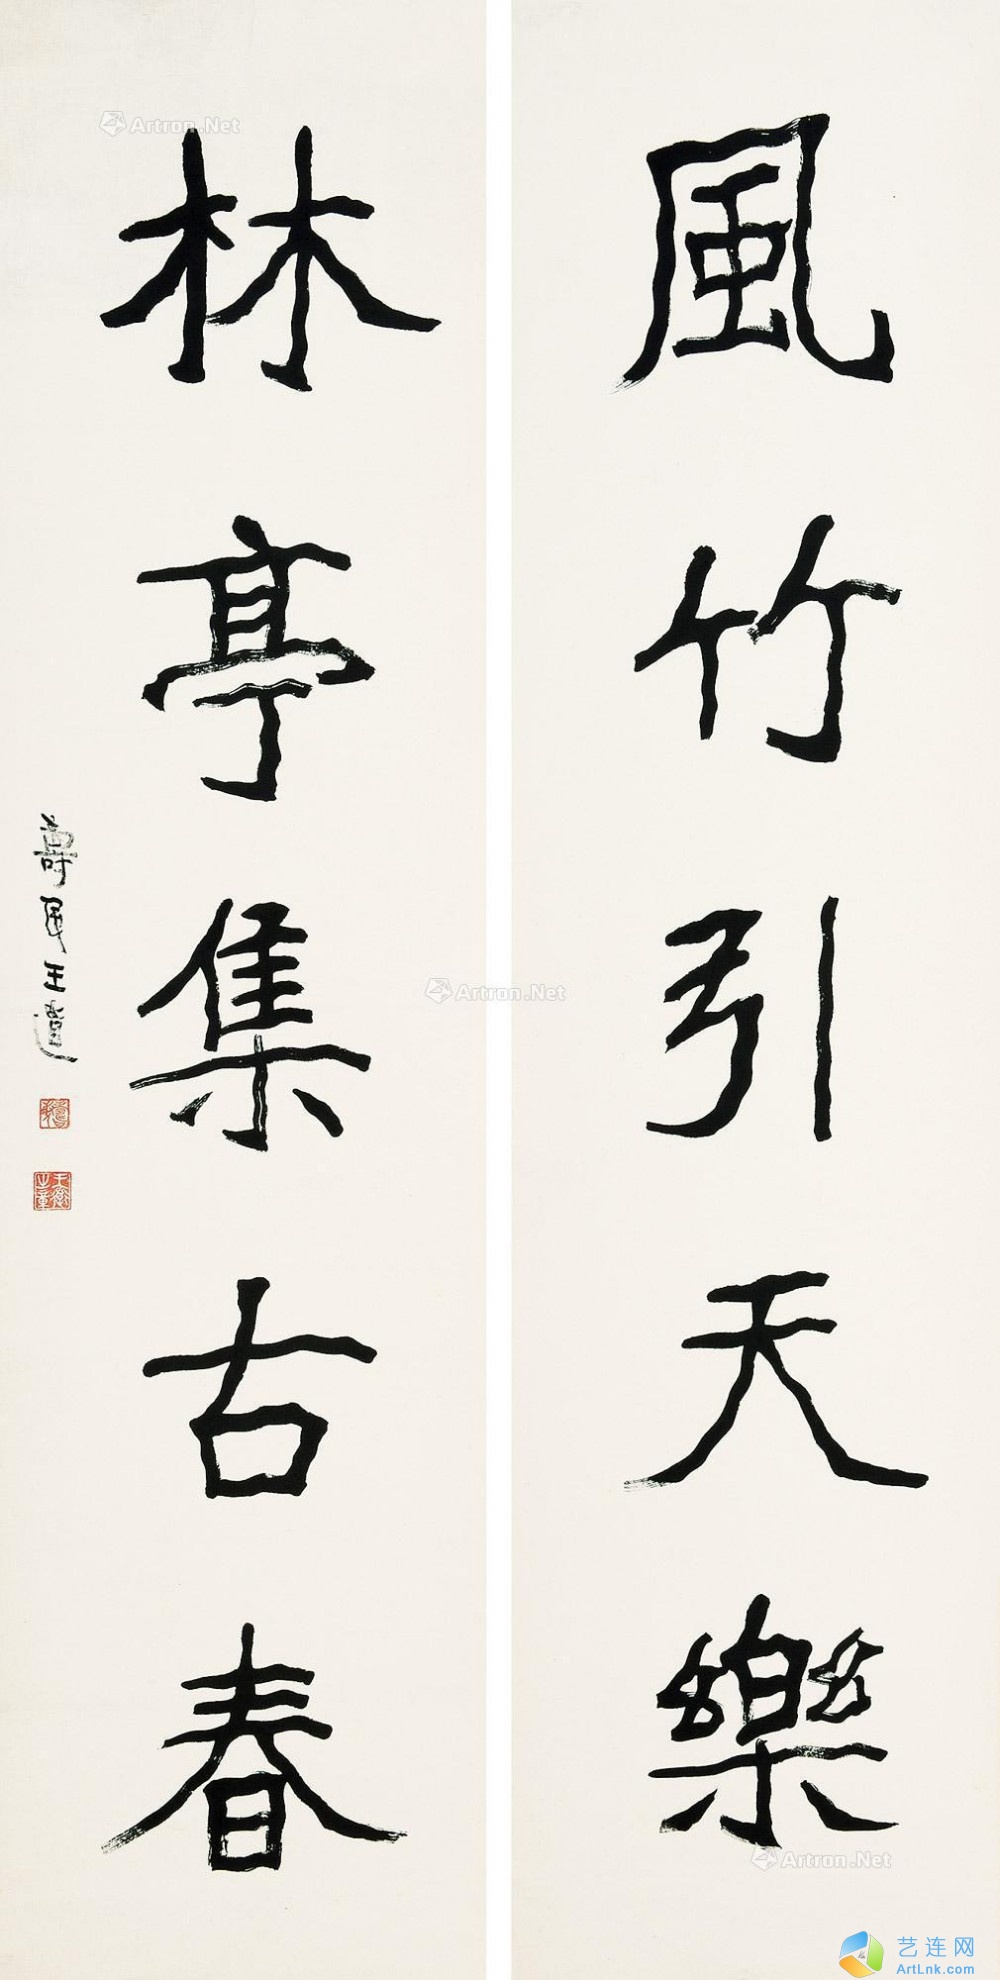 風竹引天樂
林亭集古春
壽石王遑
Artron.Net
Artron.Net
Artron.Net
艺连网
ArtLnk.com